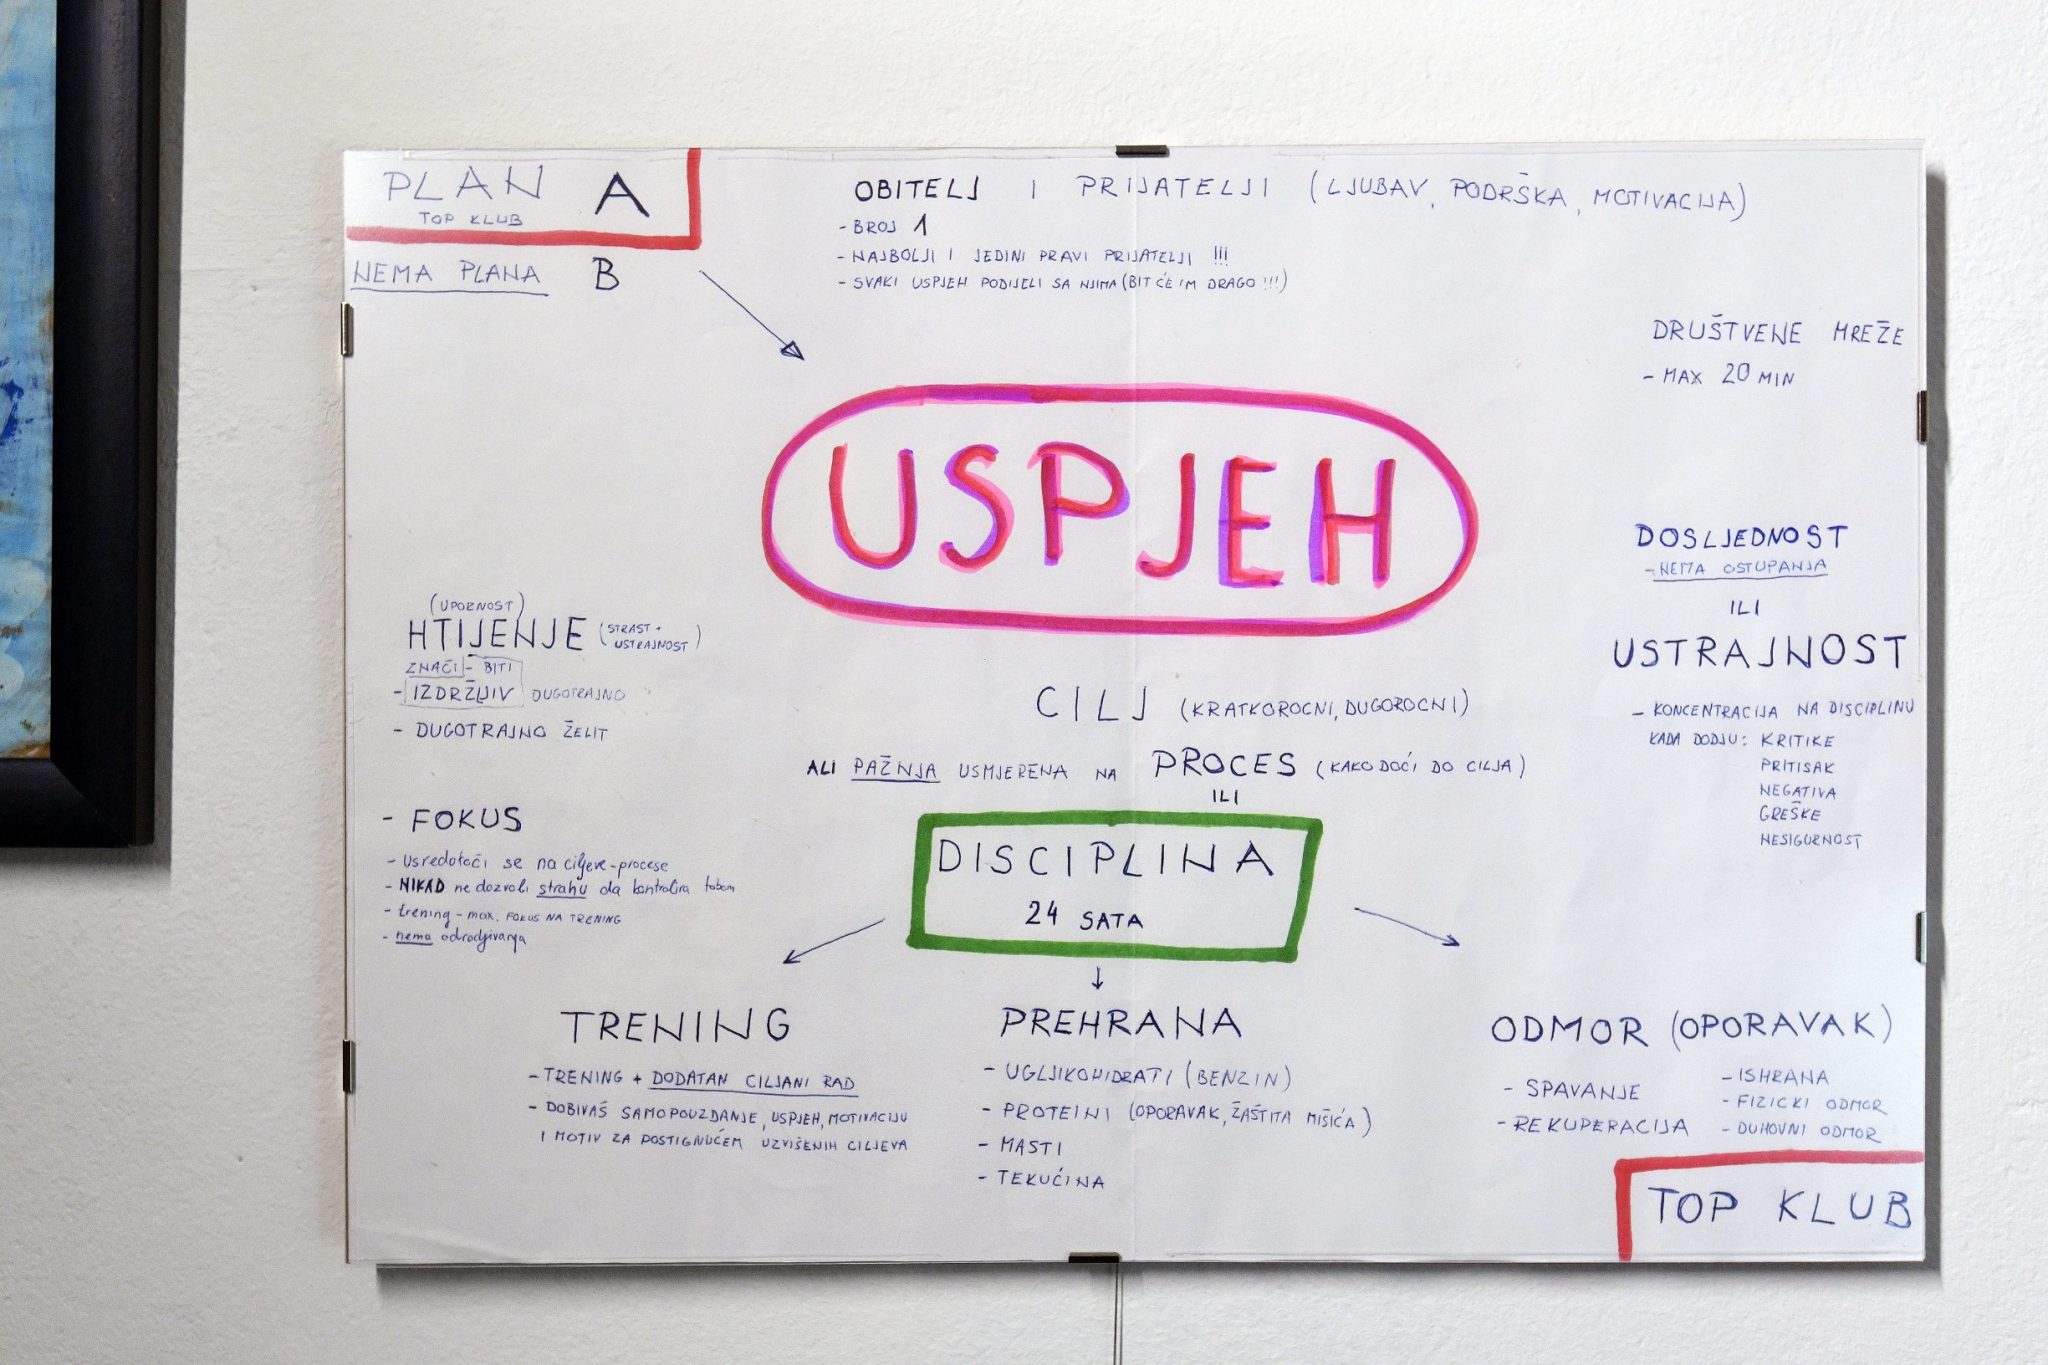 PLAN A
TOP KLUB
NEMA PLANA B
OBITELJ I PRIJATELJI (LJUBAV, PODRŠKA, MOTIVACIJA)
- BROJ 1
- NAJBOLJI I JEDINI PRAVI PRIJATELJI !!!
- SVAKI USPJEH PODIJELI SA NJIMA (BIT ĆE IM DRAGO !!!)
DRUŠTVENE MREŽE
- MAX 20 MIN
USPJEH
DOSLJEDNOST
- NEMA OSTUPANJA
ILI
USTRAJNOST
- KONCENTRACIJA NA DISCIPLINU
KADA DODJU: KRITIKE
PRITISAK
NEGATIVA
GREŠKE
NESIGURNOST
(UPORNOST)
HTIJENJE (STRAST + USTRAJNOST)
ZNAČI - BITI
- IZDRŽLJIV DUGOTRAJNO
- DUGOTRAJNO ŽELIT
CILJ (KRATKOROCNI, DUGOROCNI)
ALI PAŽNJA USMJERENA NA PROCES (KAKO DOĆI DO CILJA)
ILI
DISCIPLINA
24 SATA
- FOKUS
- usredotoči se na ciljeve - procese
- NIKAD ne dozvoli strahu da kontrolira tobom
- trening - max. FOKUS NA TRENING
- nema odradjivanja
TRENING
- TRENING + DODATAN CILJANI RAD
- DOBIVAŠ SAMOPOUZDANJE, USPJEH, MOTIVACIJU
I MOTIV ZA POSTIGNUĆEM UZVIŠENIH CILJEVA
PREHRANA
- UGLJIKOHIDRATI (BENZIN)
- PROTEINI (OPORAVAK, ZAŠTITA MIŠIĆA)
- MASTI
- TEKUĆINA
ODMOR (OPORAVAK)
- SPAVANJE
- REKUPERACIJA
- ISHRANA
- FIZICKI ODMOR
- DUHOVNI ODMOR
TOP KLUB